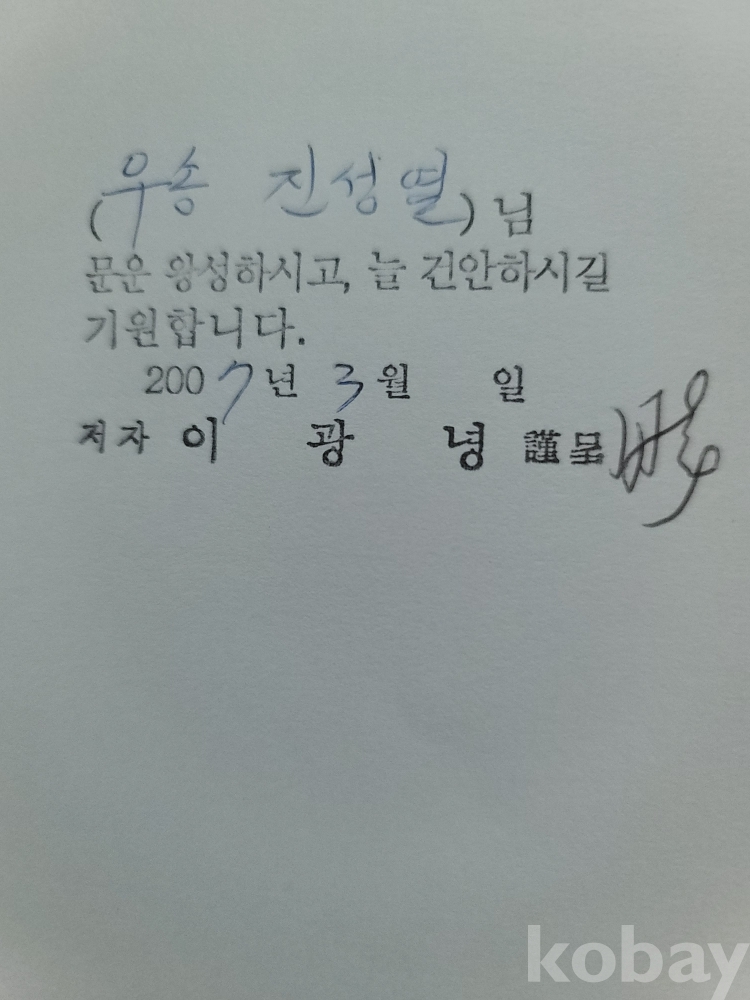 (우송 진성열) 님
문운 왕성하시고, 늘 건안하시길
기원합니다.
2007년 3월 일
저자 이 광 녕 謹呈
kobay